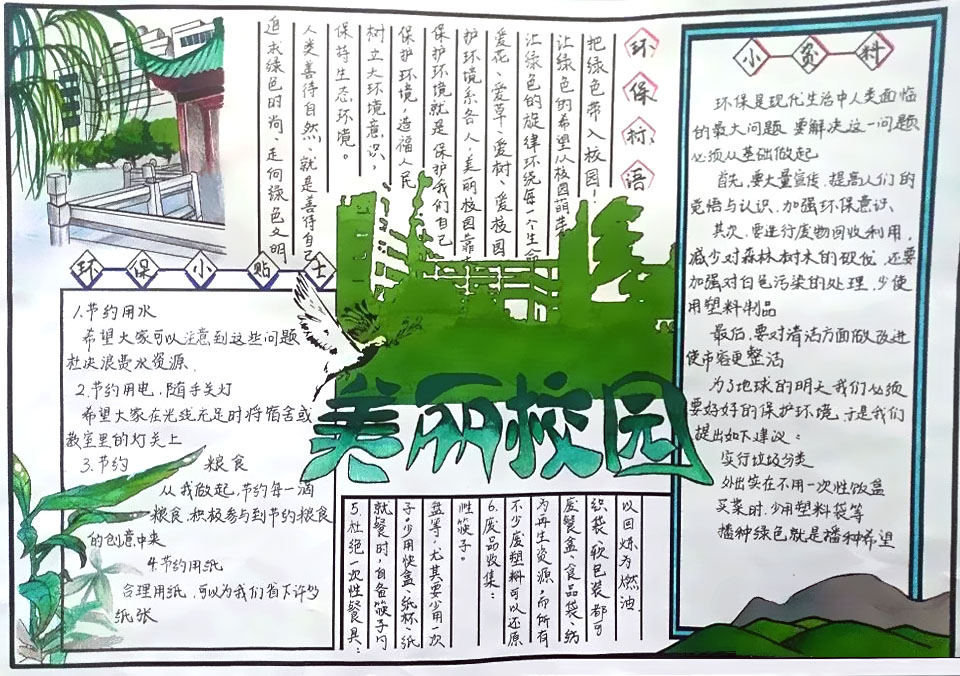 环保标语
把绿色带入校园！
让绿色的希望从校园萌芽
让绿色的旋律环绕每一个生命
爱花、爱草、爱树、爱校园
护环境系各人，美丽校园靠
保护环境就是保护我们自己
保护环境，造福人民
树立大环境意识，
保持生态环境。
人类善待自然，就是善待自己
追求绿色时尚，走向绿色文明
环保小贴士
1.节约用水
希望大家可以注意到这些问题
杜决浪费水资源.
2.节约用电，随手关灯
希望大家在光线充足时将宿舍或
教室里的灯关上
3.节约 粮食
从我做起，节约每一滴
粮食.积极参与到节约粮食
的创意中来
4.节约用纸
合理用纸，可以为我们省下许多
纸张
美丽校园
5.杜绝一次性餐具：
就餐时，自备筷子勺
子。少用快盒、纸杯、纸
盘等，尤其要少用一次
性筷子。
6.废品收集：
不少废塑料可以还原
为再生资源，而所有
废餐盒、食品袋、纺
织袋、软包装都可
以回炼为燃油
小资料
环保是现代生活中人类面临
的最大问题 要解决这一问题
必须从基础做起
首先，要大量宣传，提高人们的
觉悟与认识，加强环保意识.
其次，要进行废物回收利用，
减少对森林树木的砍伐，还要
加强对白色污染的处理，少使
用塑料制品
最后，要对清洁方面做改进
使市容更整洁
为了地球的明天我们必须
要好好的保护环境，于是我们
提出如下建议：
实行垃圾分类
外出实在不用一次性饭盒
买菜时，少用塑料袋等
播种绿色就是播种希望